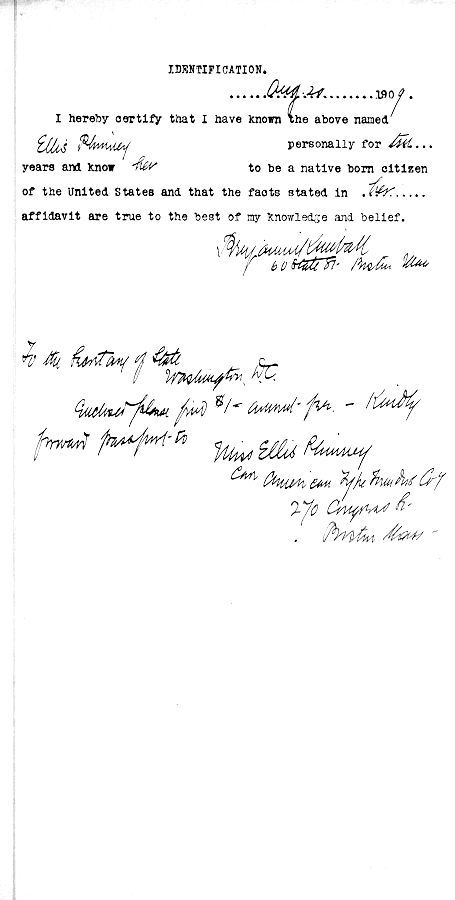 IDENTIFICATION.
......Aug. 20.........1909.
I hereby certify that I have known the above named
Ellis Phinney personally for ten...
years and know her to be a native born citizen
of the United States and that the facts stated in .her.....
affidavit are true to the best of my knowledge and belief.
Benjamin Kimball
60 State St. Boston Mass
To the Secretary of State
Washington, D.C.
Enclosed please find $1- amount fee. - Kindly
forward passport to
Miss Ellis Phinney
Care American Type Founders Co'y
270 Congress St.
Boston Mass -